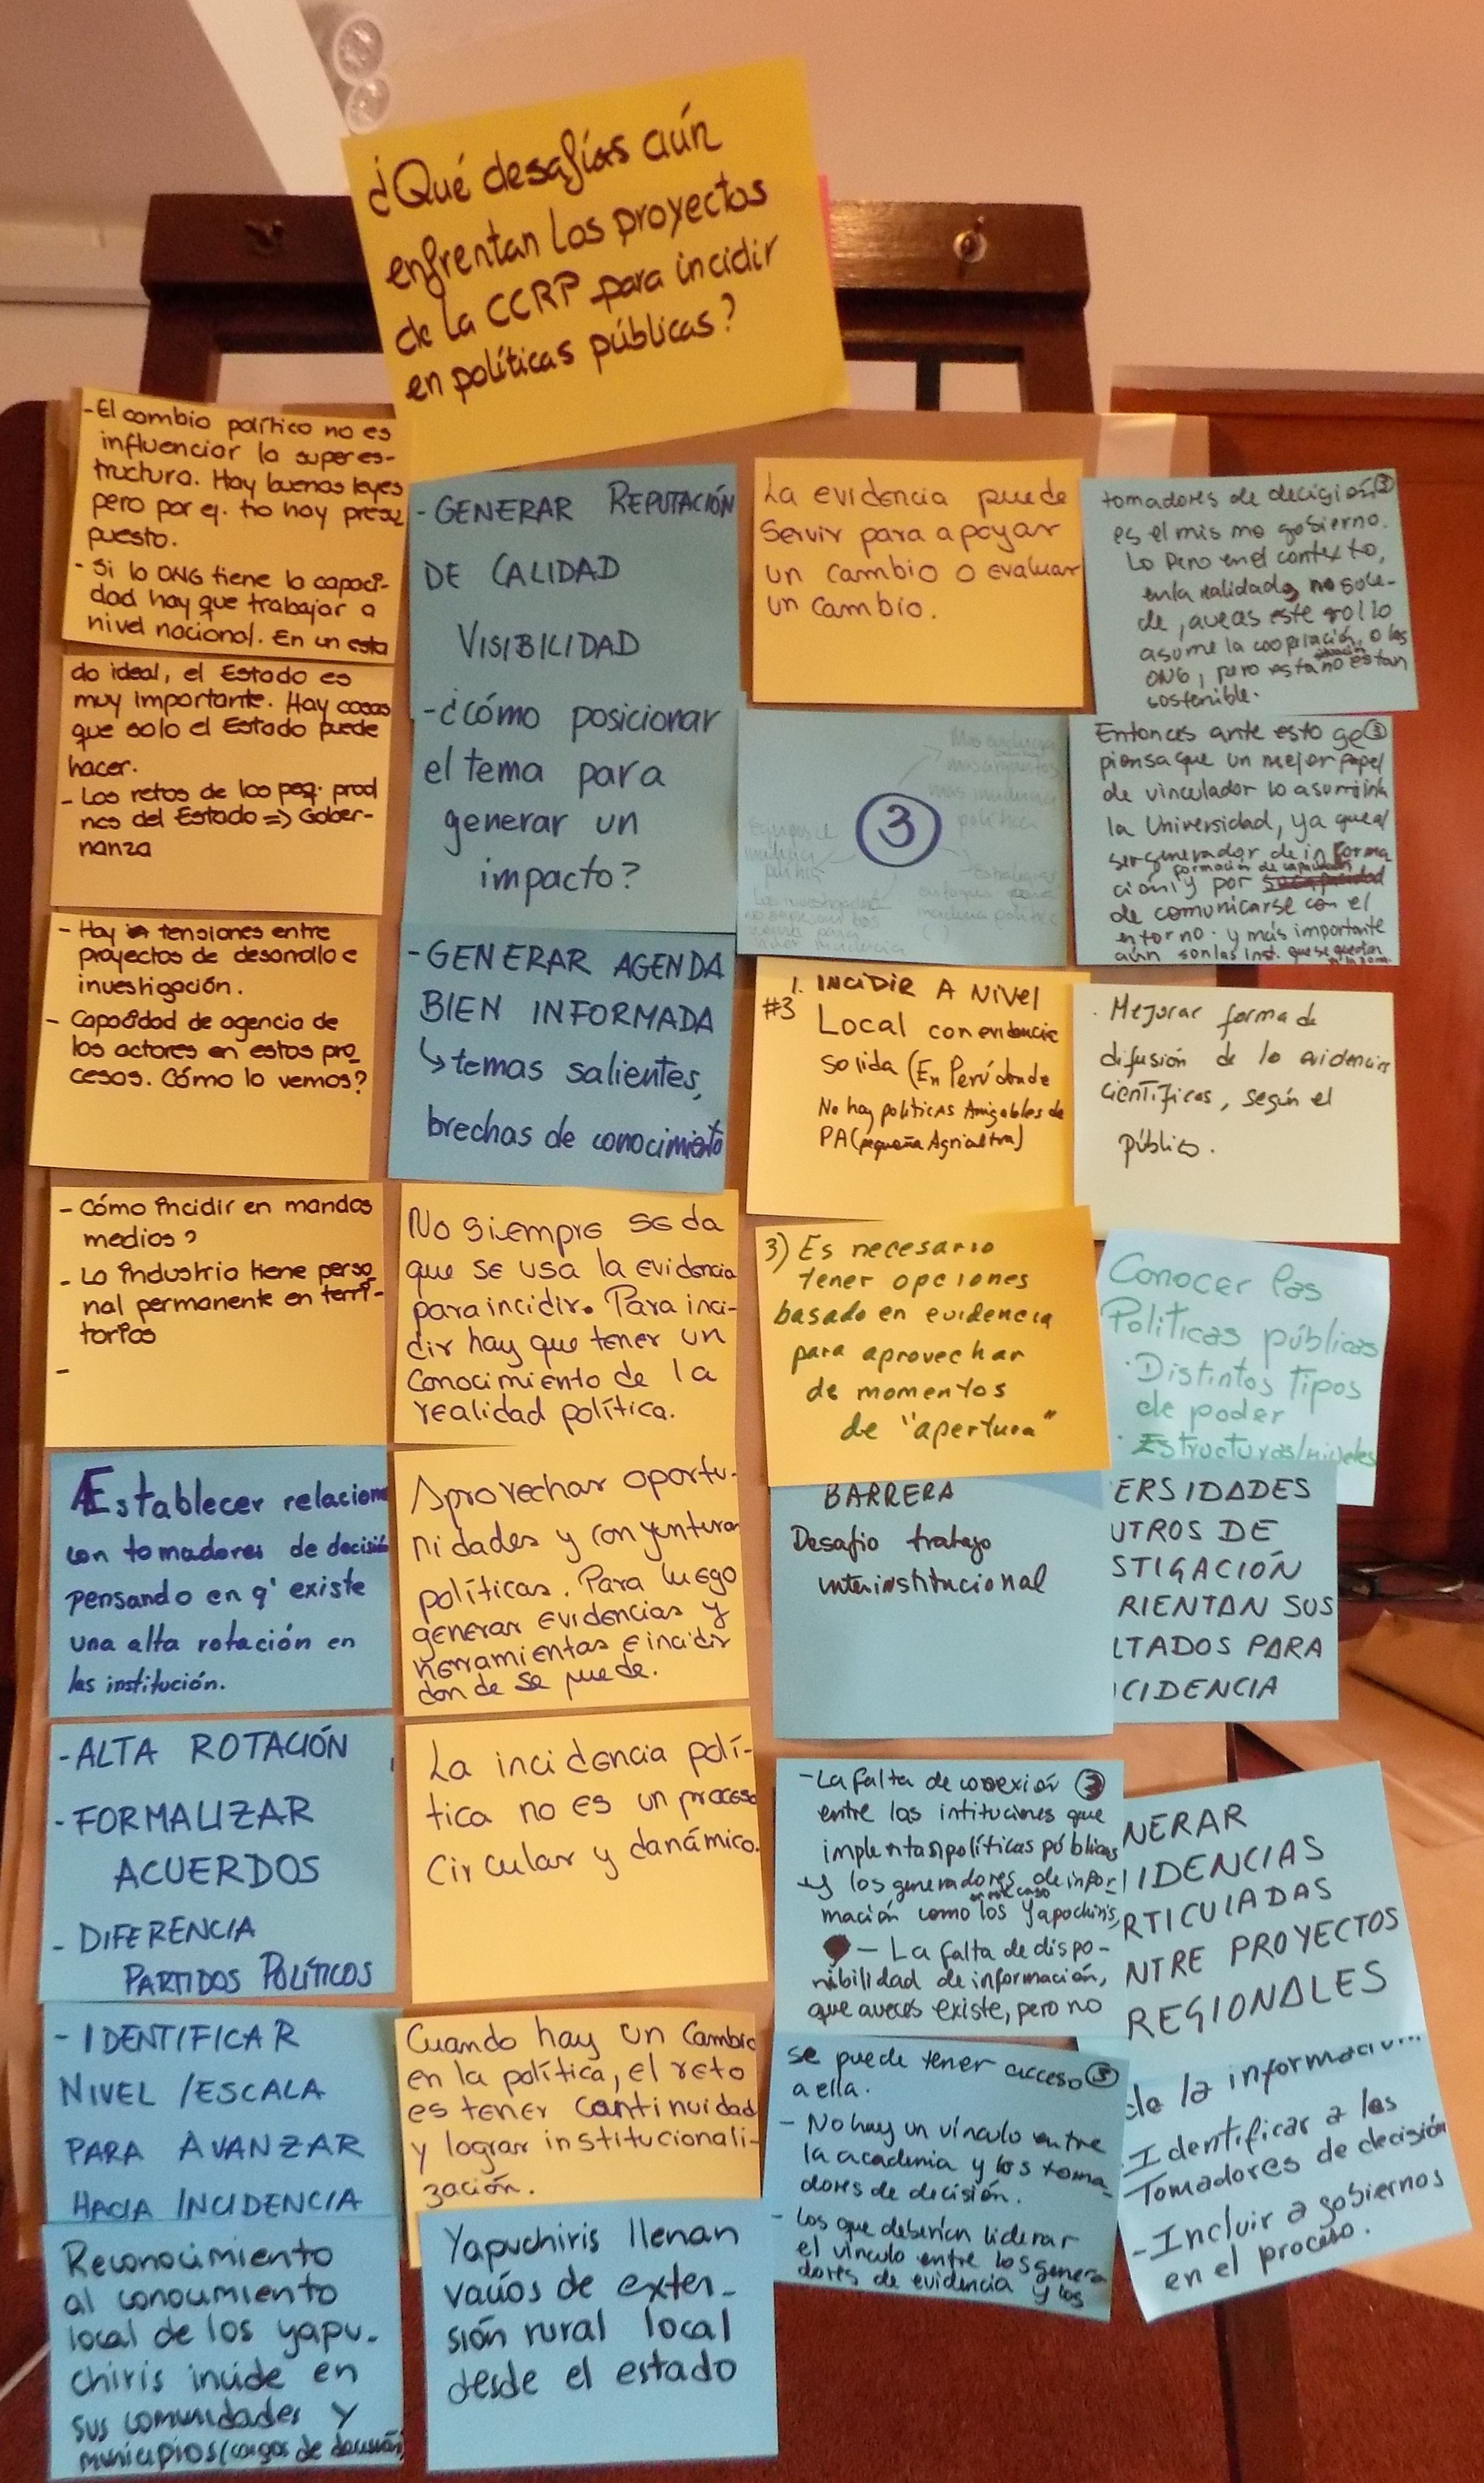 ¿Qué desafíos aún
enfrentan los proyectos
de la CCRP para incidir
en políticas públicas?
- El cambio político no es
influenciar la superes-
tructura. Hay buenas leyes
pero por ej. no hay presu
puesto.
- Si la ONG tiene la capaci-
dad hay que trabajar a
nivel nacional. En un esta
do ideal, el Estado es
muy importante. Hay cosas
que solo el Estado puede
hacer.
- Los retos de los peq. prod
nos del Estado => Gober-
nanza
- Hay tensiones entre
proyectos de desarrollo e
investigación.
- Capacidad de agencia de
los actores en estos pro_
cesos. Cómo lo vemos?
- Cómo incidir en mandos
medios?
- La industria tiene perso_
nal permanente en terri-
torios
-
Establecer relacione
con tomadores de decisión
pensando en q' existe
una alta rotación en
las institución.
- ALTA ROTACIÓN
- FORMALIZAR
ACUERDOS
- DIFERENCIA
PARTIDOS POLÍTICOS
- IDENTIFICAR
NIVEL /ESCALA
PARA AVANZAR
HACIA INCIDENCIA
Reconocimiento
al conocimiento
local de los yapu-
chiris incide en
sus comunidades y
municipios (cargos de decisión)
- GENERAR REPUTACIÓN
DE CALIDAD
VISIBILIDAD
- ¿cómo posicionar
el tema para
generar un
impacto?
- GENERAR AGENDA
BIEN INFORMADA
↳ temas salientes,
brechas de conocimiento
No siempre se da
que se usa la evidencia
para incidir. Para inci-
dir hay que tener un
conocimiento de la
realidad política.
Aprovechar oportu-
nidades y conyunturas
políticas. Para luego
generar evidencias y
herramientas e incidir
donde se puede.
La incidencia polí-
tica no es un proceso
circular y danámico.
Cuando hay un cambio
en la política, el reto
es tener continuidad
y lograr institucionali-
zación.
Yapuchiris llenan
vacíos de exten_
sión rural local
desde el estado
La evidencia puede
servir para apoyar
un cambio o evaluar
un cambio.
3
1. INCIDIR A NIVEL
#3 Local con evidencia
solida (En Perú donde
No hay politicas Amigables de
PA (pequeña Agricultura)
3) Es necesario
tener opciones
basado en evidencia
para aprovechar
de momentos
de "apertura"
BARRERA
Desafio trabajo
interinstitucional
- La falta de conexión 3
entre las intituciones que
implentan políticas públicas
y los generadores de infor-
mación como en este caso los Yapochiris,
- La falta de dispo-
nibilidad de información,
que aveces existe, pero no
se puede tener acceso 3
a ella.
- No hay un vínculo entre
la academia y los toma_
dores de decisión.
- Los que deberían liderar
el vínculo entre los genera
dores de evidencia y los
tomadores de decisión 3
es el mismo gobierno.
Lo pero en el contexto,
en la realidad, no suce-
de, aveces este rollo
asume la cooperación, o las
ONG, pero esta no es tan
sostenible.
Entonces ante esto se 3
piensa que un mejor papel
de vinculador lo asumiría
la Universidad, ya que al
ser generador de informa
ción y por formación de capacidades
de comunicarse con el
entorno. y más importante
aún son las inst. que se quedan
Mejorar forma de
difusión de la evidencias
científicas, según el
público.
Conocer las
Politicas públicas
· Distintos tipos
de poder
· Estructuras/niveles
ERSIDADES
UTROS DE
STIGACIÓN
RIENTAN SUS
LTADOS PARA
CIDENCIA
NERAR
IDENCIAS
RTICULADAS
NTRE PROYECTOS
REGIONALES
de la informaci
- Identificar a los
Tomadores de decisión
- Incluir a gobiernos
en el proceso.